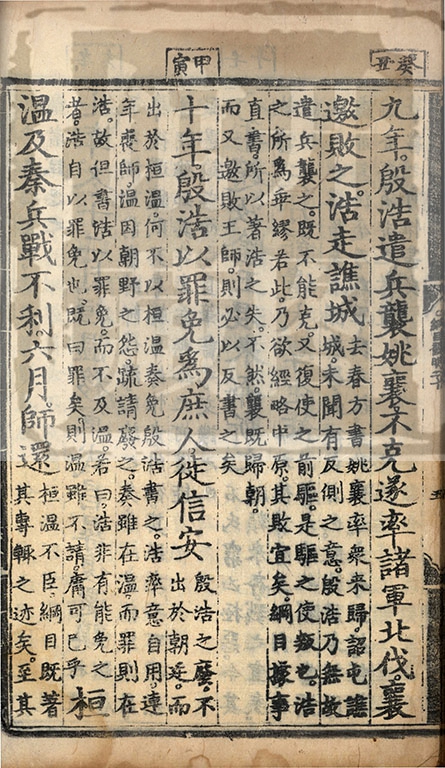 癸丑
九年。殷浩遣兵襲姚襄不克遂率諸軍北伐。襄
邀敗之。浩走譙城
去春方書姚襄率衆來歸。詔屯譙
城未聞有反側之意。殷浩乃無故
遣兵襲之。既不能克。又復使之前驅。是驅之使叛也。浩
之所爲乖繆若此。乃欲經略中原。其敗宜矣。綱目據事
直書。所以著浩之失。不然。襄既歸朝。
而又邀敗王師。則必以反書之矣
甲寅
十年。殷浩以罪免爲庶人。徙信安
殷浩之廢。不
出於朝廷。而
出於桓温。何不以桓温奏免殷浩書之。浩率意自用。連
年喪師。温因朝野之怨。疏請廢之。奏雖在温而罪則在
浩。故但書浩以罪免。而不及温。若曰。浩非有能免之
者。浩自以罪免也。既曰罪矣則温雖不請。庸可已乎
桓
温及秦兵戰不利六月。師還
桓温不臣。綱目既著
其專輒之迹矣。至其